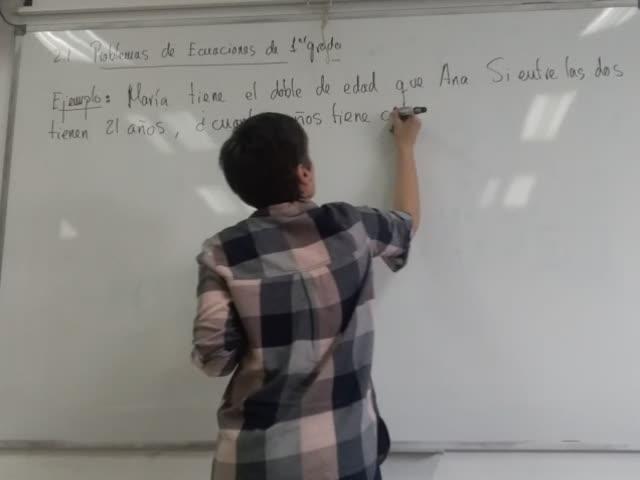 2.1 Problemas de Ecuaciones de 1er grado
Ejemplo: María tiene el doble de edad que Ana Si entre las dos
tienen 21 años, ¿ tiene